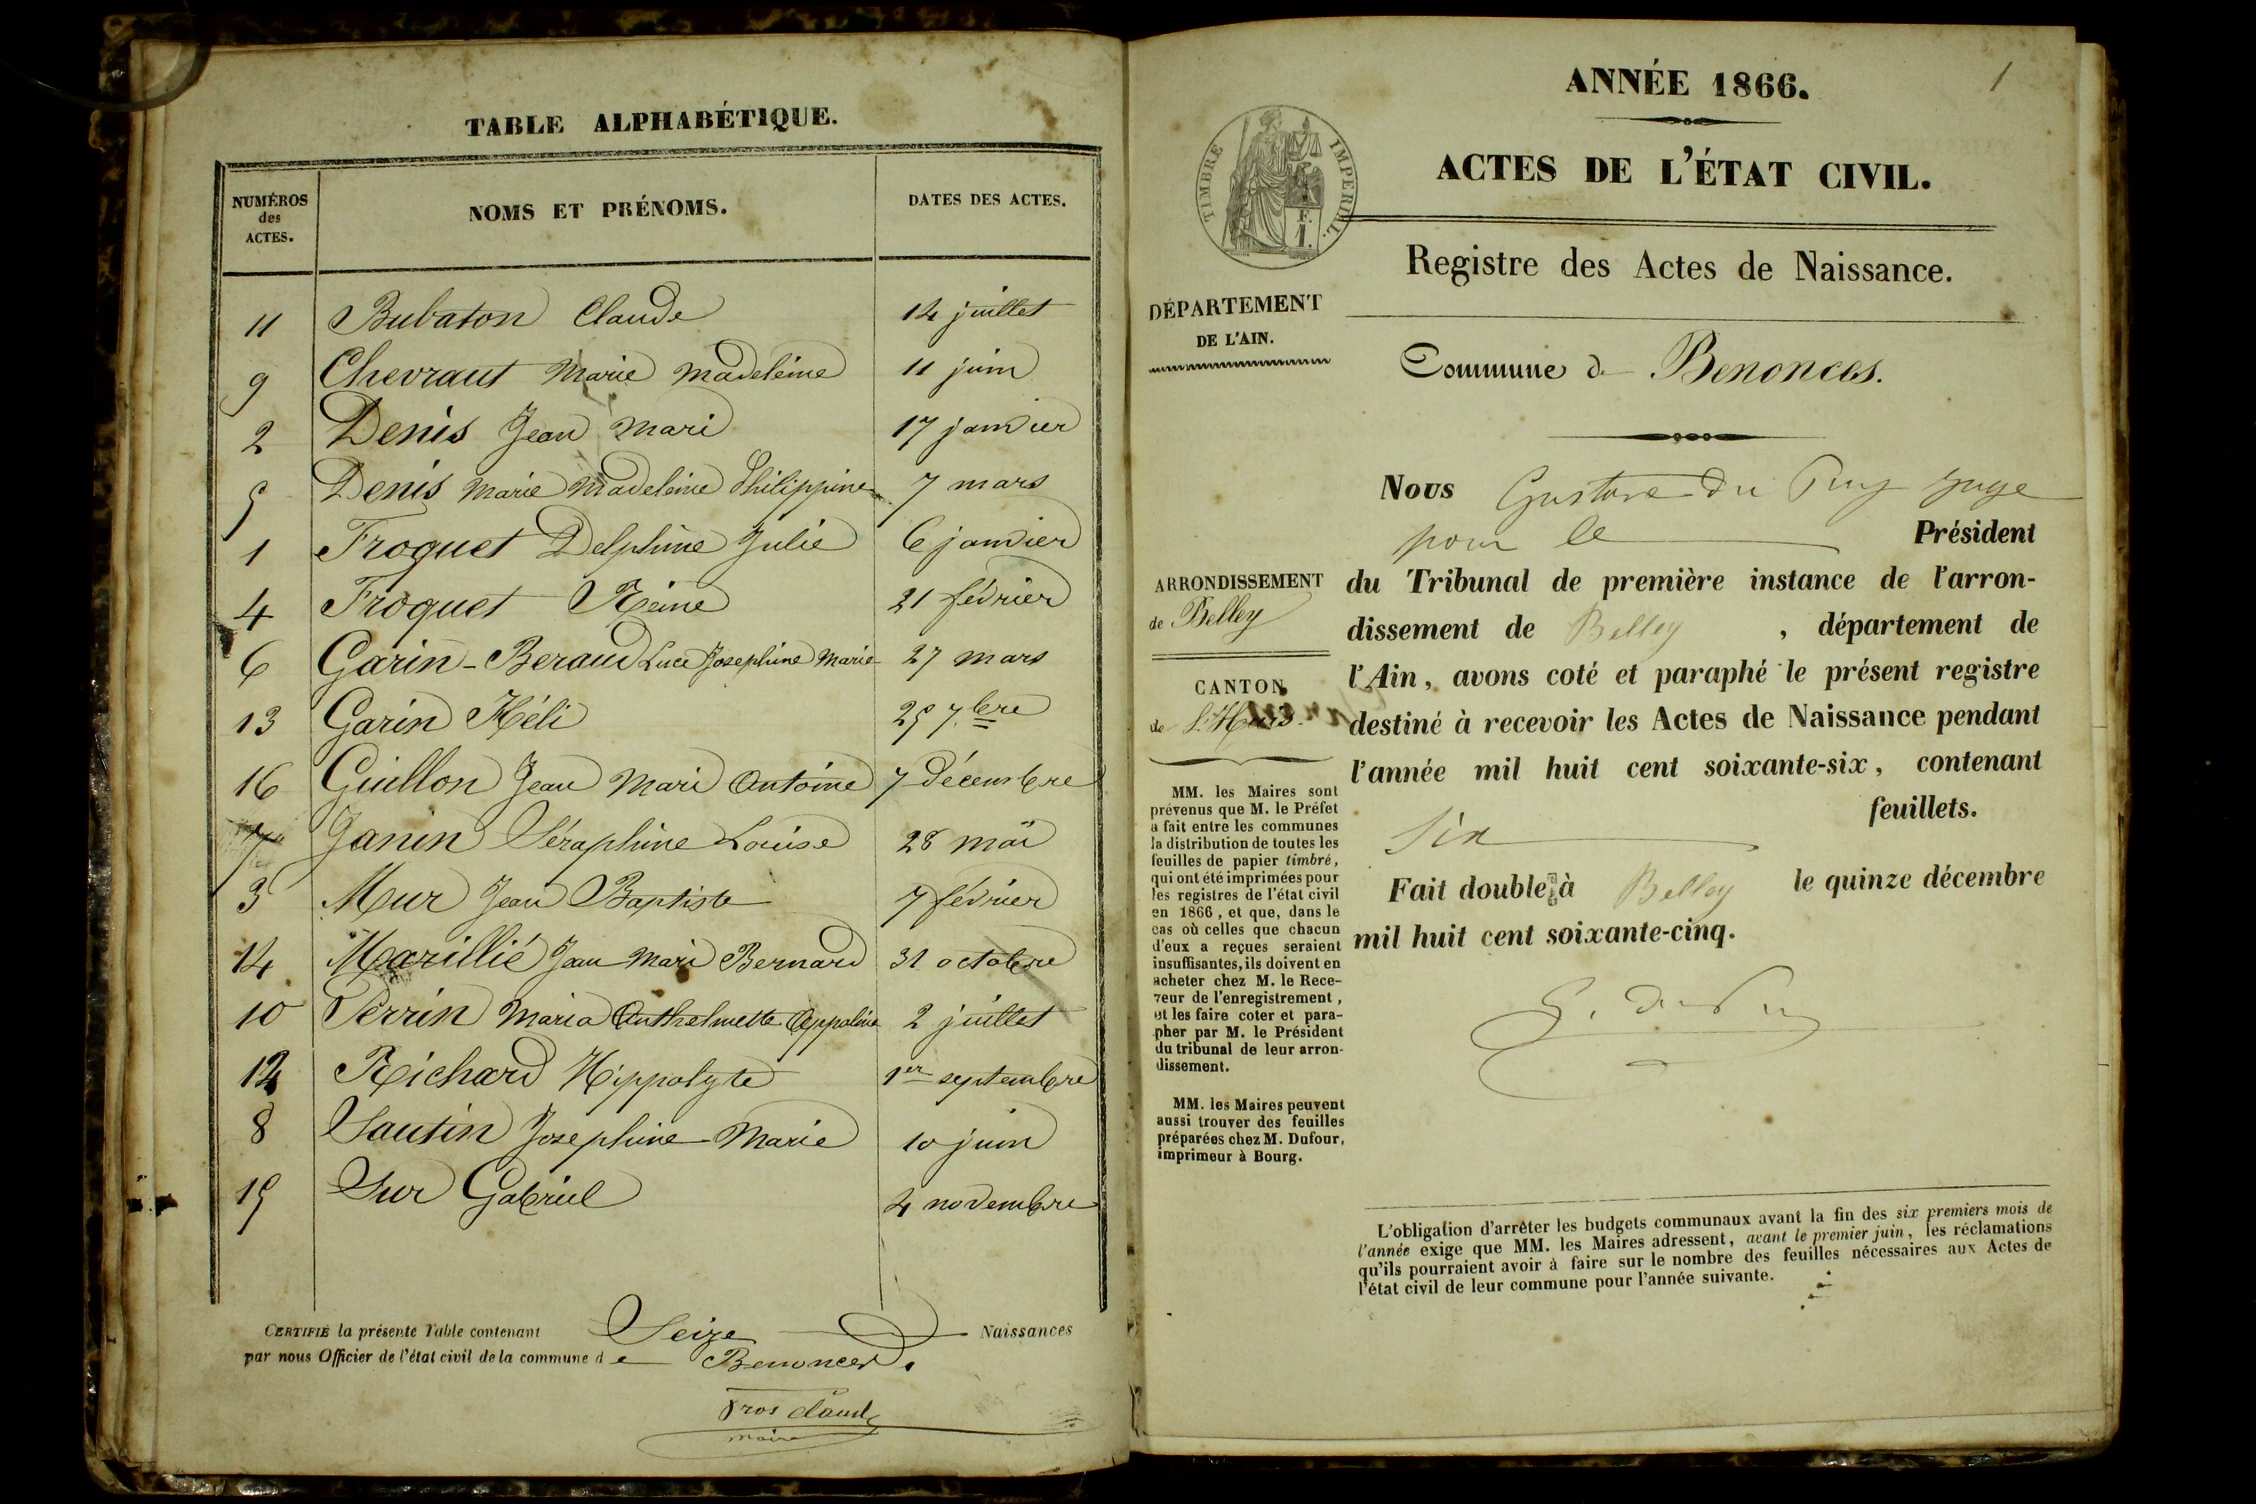 TABLE ALPHABÉTIQUE.
NUMÉROS des ACTES. NOMS ET PRÉNOMS. DATES DES ACTES.
11 Bubaton Claude 14 juillet
9 Chevraut Marie Madeleine 11 juin
2 Denis Jean Mari 17 janvier
5 Denis Marie Madeleine Philippine 7 mars
1 Froquet Delphine Julie 6 janvier
4 Froquet Reine 21 février
6 Garin-Beraud Luce Josephine Marie 27 mars
13 Garin Héli 25 7bre
16 Guillon Jean Mari Antoine 7 décembre
7 Janin Séraphine Louise 28 mai
3 Mur Jean Baptiste 7 février
14 Marillié Jean Mari Bernard 31 octobre
10 Perrin Maria Anthelmette Appoline 2 juillet
12 Richard Hippolyte 1er septembre
8 Sautin Josephine Marie 10 juin
15 Sur Gabriel 4 novembre
CERTIFIÉ la présente Table contenant Seize Naissances
par nous Officier de l'état civil de la commune de Benonces.
Tros Claude
maire
1
ANNÉE 1866.
ACTES DE L'ÉTAT CIVIL.
TIMBRE IMPERIAL.
Registre des Actes de Naissance.
DÉPARTEMENT
DE L'AIN.
Commune de Benonces.
Nous Gustave du Puy juge
pour le Président
ARRONDISSEMENT
de Belley
du Tribunal de première instance de l'arron-
dissement de Belley, département de
l'Ain, avons coté et paraphé le présent registre
destiné à recevoir les Actes de Naissance pendant
l'année mil huit cent soixante-six, contenant
Six feuillets.
Fait double à Belley le quinze décembre
mil huit cent soixante-cinq.
G. du Puy
CANTON
de
MM. les Maires sont
prévenus que M. le Préfet
a fait entre les communes
la distribution de toutes les
feuilles de papier timbré,
qui ont été imprimées pour
les registres de l'état civil
en 1866, et que, dans le
cas où celles que chacun
d'eux a reçues seraient
insuffisantes, ils doivent en
acheter chez M. le Rece-
veur de l'enregistrement,
et les faire coter et para-
pher par M. le Président
du tribunal de leur arron-
dissement.
MM. les Maires peuvent
aussi trouver des feuilles
préparées chez M. Dufour,
imprimeur à Bourg.
L'obligation d'arrêter les budgets communaux avant la fin des six premiers mois de
l'année exige que MM. les Maires adressent, avant le premier juin, les réclamations
qu'ils pourraient avoir à faire sur le nombre des feuilles nécessaires aux Actes de
l'état civil de leur commune pour l'année suivante.